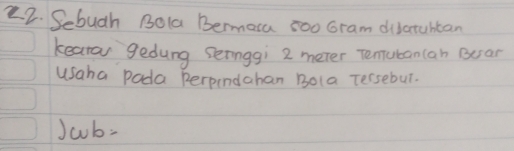 22. Sebuah Bola Bermasa 500 Gram dijatuhkan
gedung setinggi 2 meter Temukanlah Besar
usaha pada Perpindahan Bola Tersebut.
Jwb =